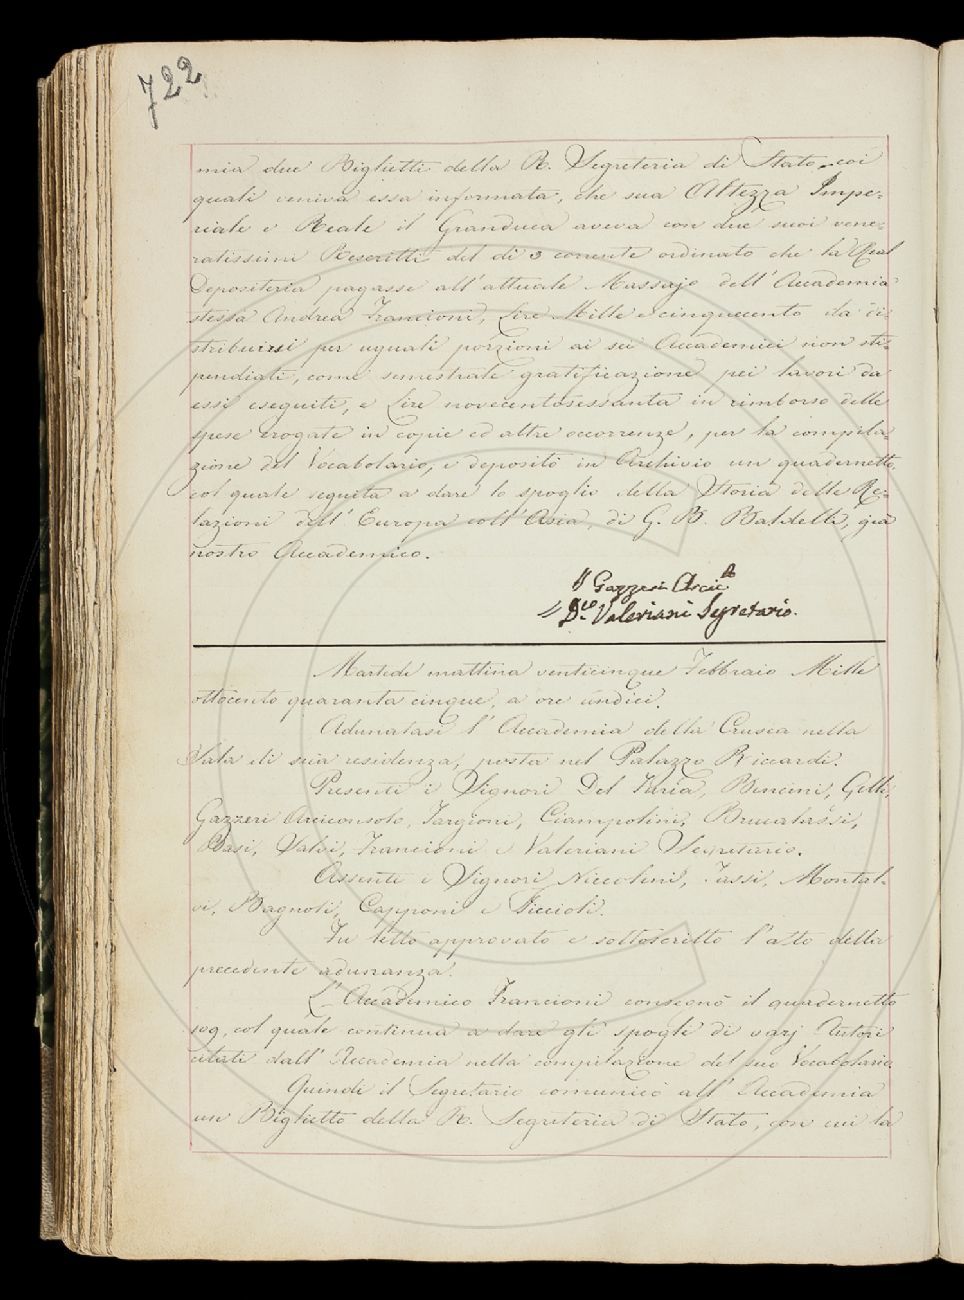 722
mia due Biglietti della R. Segreteria di Stato, coi
quali veniva essa informata, che sua Altezza Impe-
riale e Reale il Granduca aveva con due suoi vene-
ratissimi Rescritti del dì 3 corrente ordinato che la Real
Depositeria pagasse all'attuale Massajo dell'Accademia
stessa Andrea Francioni, Lire Mille e cinquecento da di-
stribuirsi per uguali porzioni ai sei Accademici non sti-
pendiati, come semestrale gratificazione pei lavori da
essi eseguiti, e Lire novecentosessanta in rimborso delle
spese erogate in copie ed altre occorrenze, per la compila-
zione del Vocabolario, e depositò in Archivio un quadernetto,
col quale seguita a dare lo spoglio della Storia delle Re-
lazioni dell'Europa coll'Asia, di G. B. Baldelli, già
nostro Accademico.
Gazzeri Arcic.
Valeriani Segretario.
Martedì mattina venticinque Febbraio Mille
ottocento quaranta cinque, a ore undici.
Adunatasi l'Accademia della Crusca nella
Sala di sua residenza, posta nel Palazzo Riccardi.
Presenti i Signori Del Furia, Bencini, Gelli,
Gazzeri Arciconsolo, Targioni, Ciampolini, Brucalassi,
Basi, Salvi, Francioni e Valeriani Segretario.
Assenti i Signori Niccolini, Tassi, Montal-
vi, Bagnoli, Capponi e Piccioli.
Fu letto approvato e sottoscritto l'atto della
precedente adunanza.
L'Accademico Francioni consegnò il quadernetto
109, col quale continua a dare gli spogli di varj Autori
citati dall'Accademia nella compilazione del suo Vocabolario.
Quindi il Segretario comunicò all'Accademia
un Biglietto della R. Segreteria di Stato, con cui la